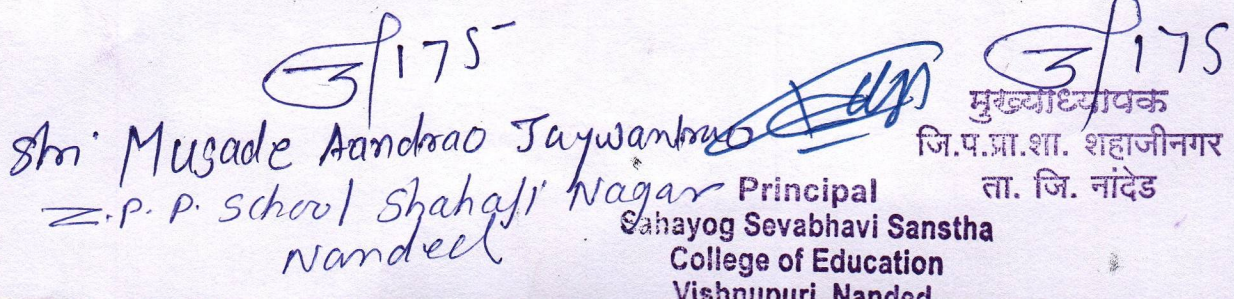 Shri Mugade Aandrao Jaywantrao
Z.P.P. School Shahaji Nagar
Nandeed
Principal
Sahayog Sevabhavi Sanstha
College of Education
Vishnupuri, Nanded
मुख्याध्यापक
जि.प.प्रा.शा. शहाजीनगर
ता. जि. नांदेड